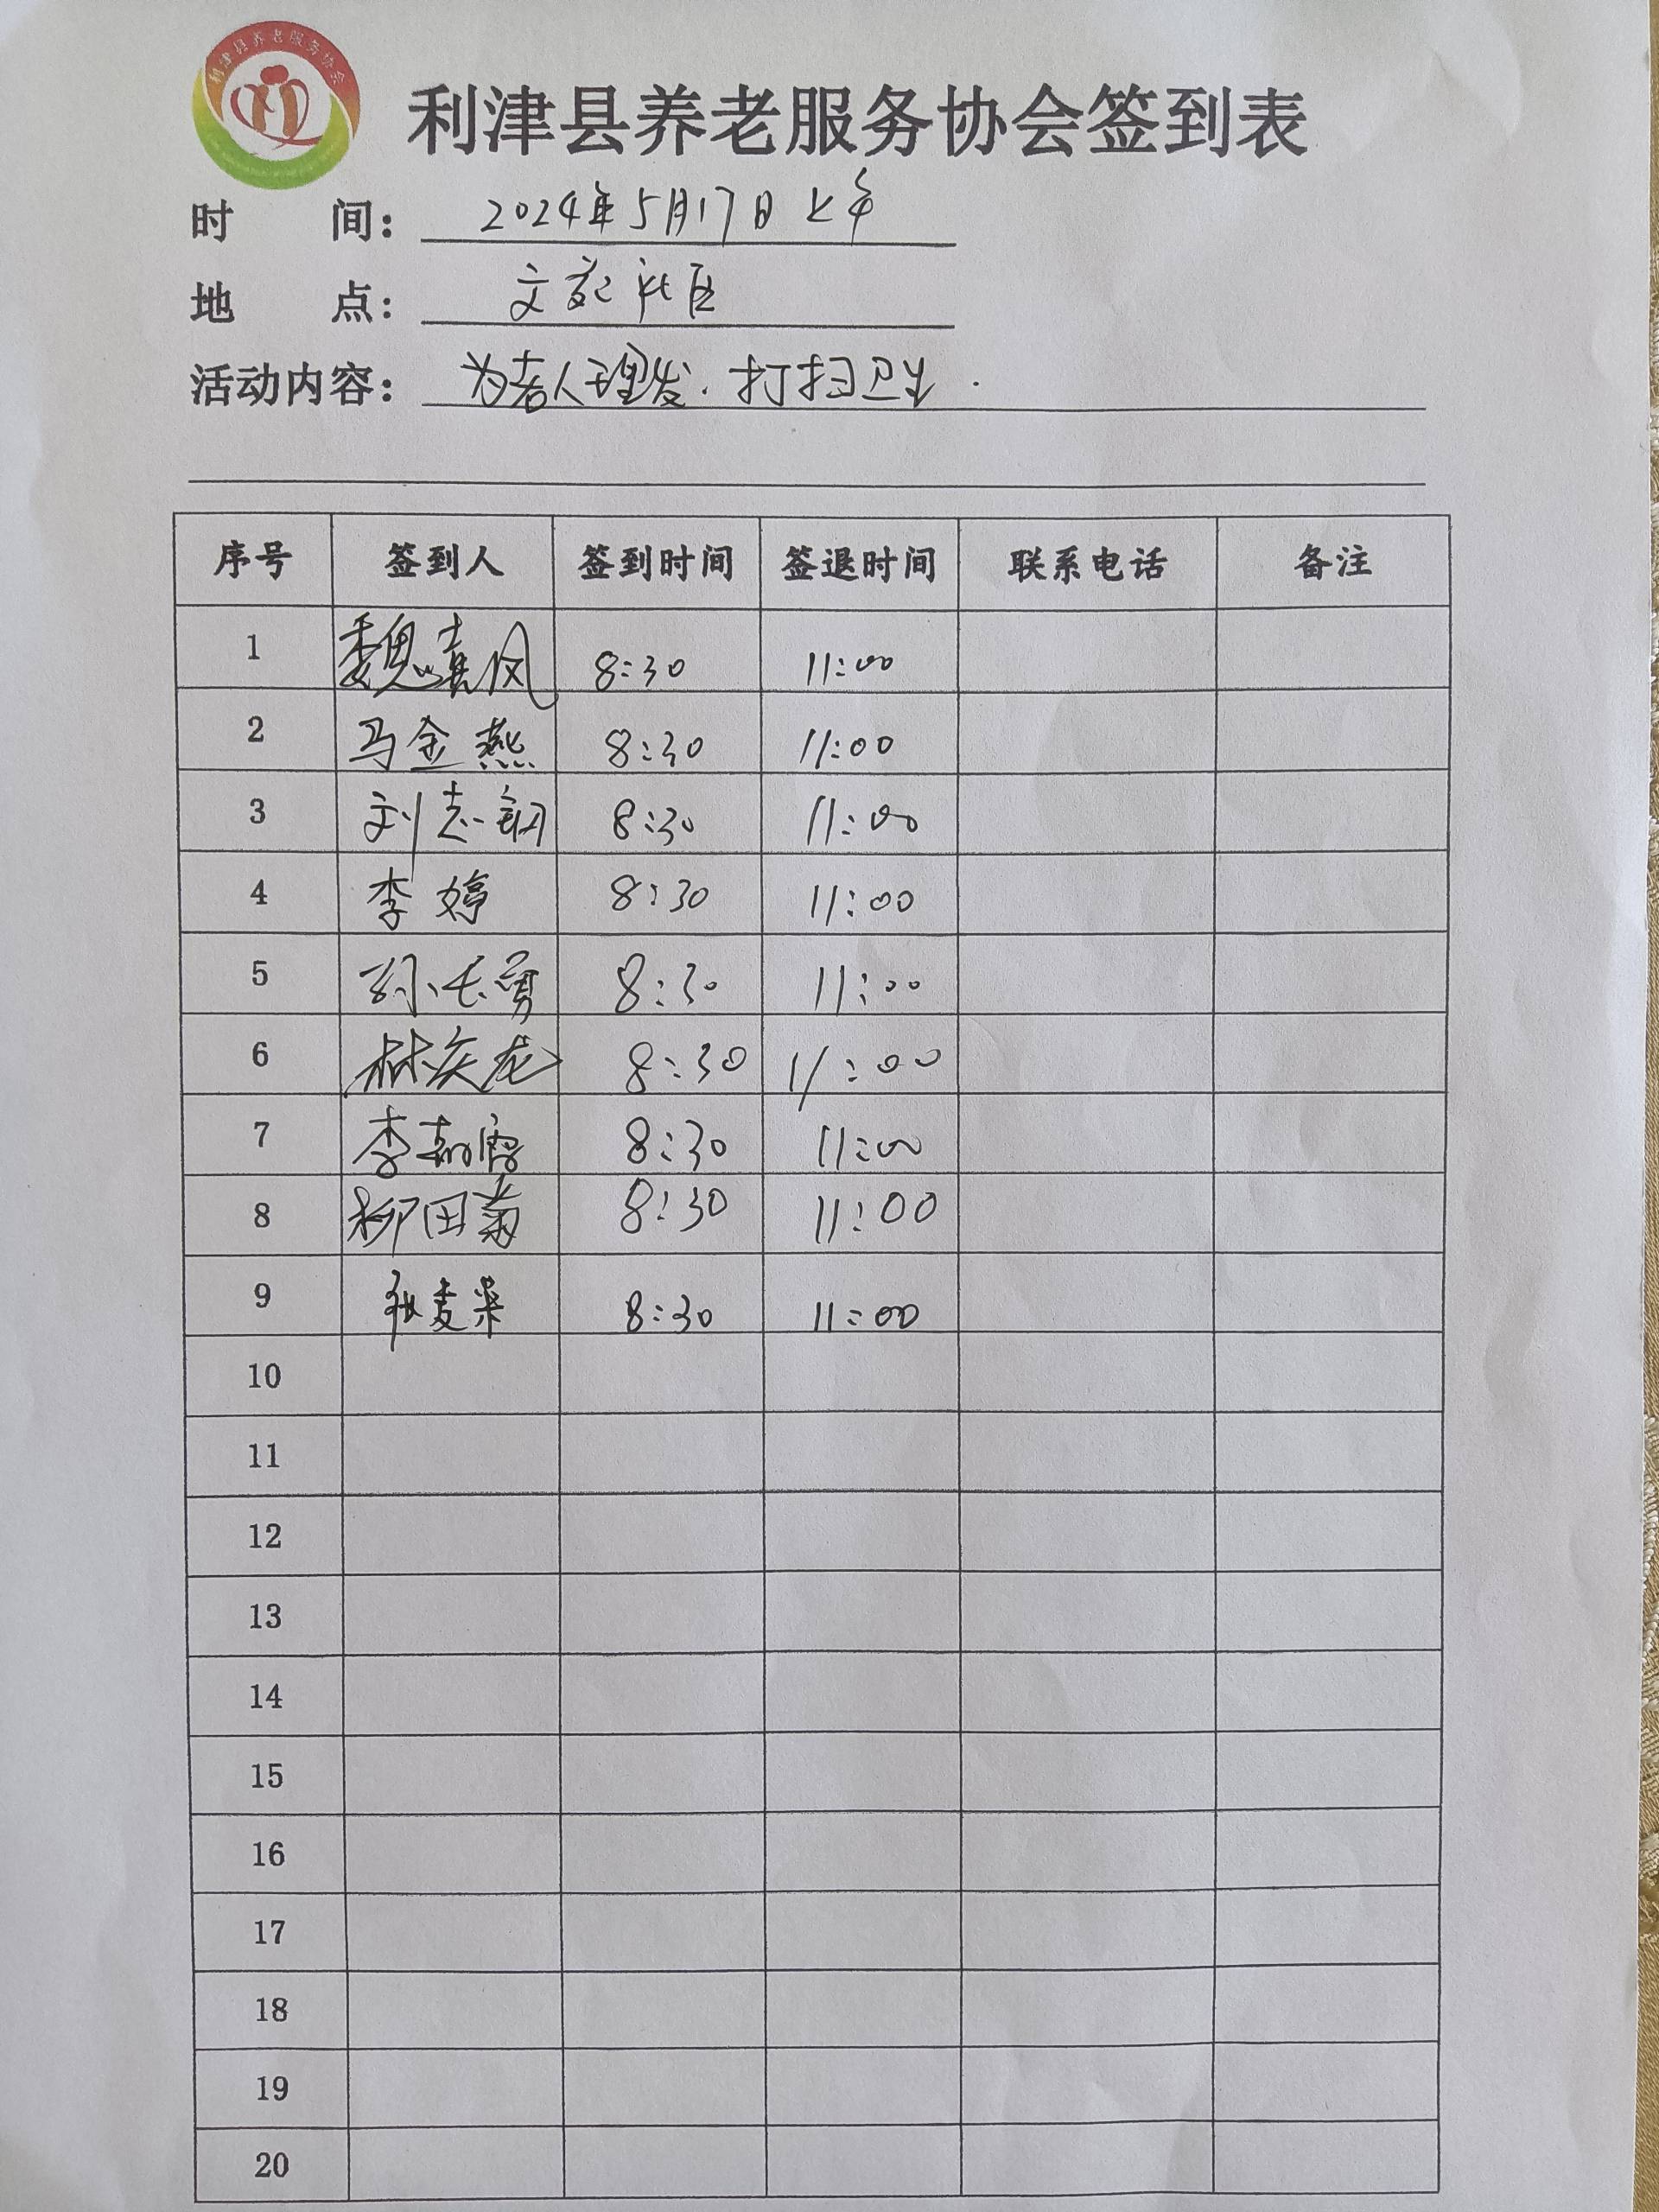 利津县养老服务协会
利津县养老服务协会签到表
时 间: 2024年5月17日上午
地 点: 文苑社区
活动内容: 为老人理发.打扫卫生.
序号 签到人 签到时间 签退时间 联系电话 备注
1 魏真风 8:30 11:00
2 马金燕 8:30 11:00
3 刘志韧 8:30 11:00
4 李婷 8:30 11:00
5 孙长勇 8:30 11:00
6 林庆龙 8:30 11:00
7 李 8:30 11:00
8 柳田菊 8:30 11:00
9 张麦 8:30 11:00
10
11
12
13
14
15
16
17
18
19
20